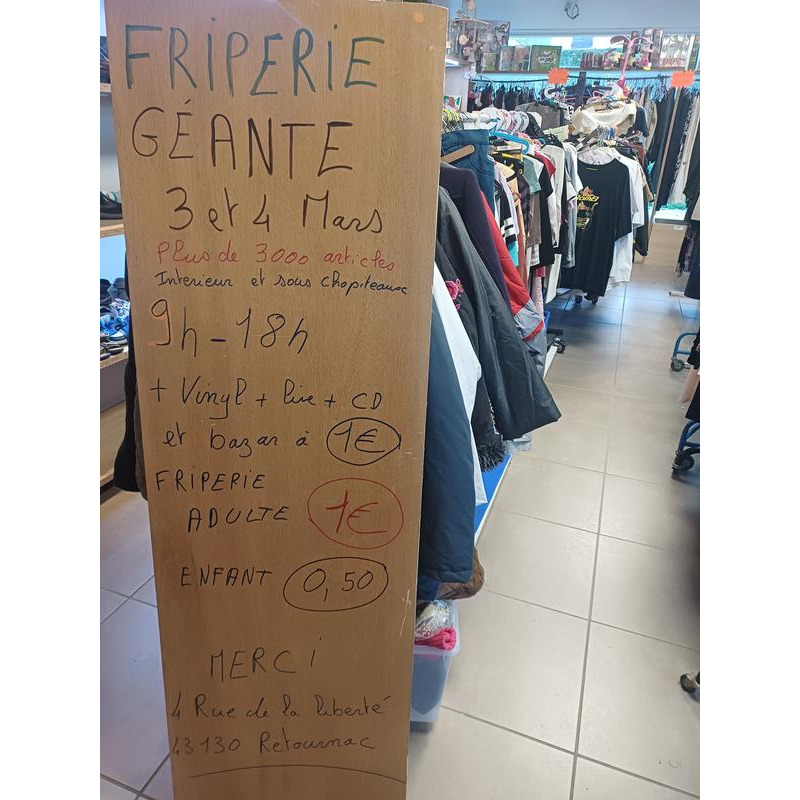 FRIPERIE
GÉANTE
3 et 4 Mars
Plus de 3000 articles
Interieur et sous chapiteaux
9h - 18h
+ Vinyl + livre + CD
et bazar à 1€
FRIPERIE
ADULTE 1€
ENFANT 0,50
MERCI
4 Rue de la liberté
43130 Retournac